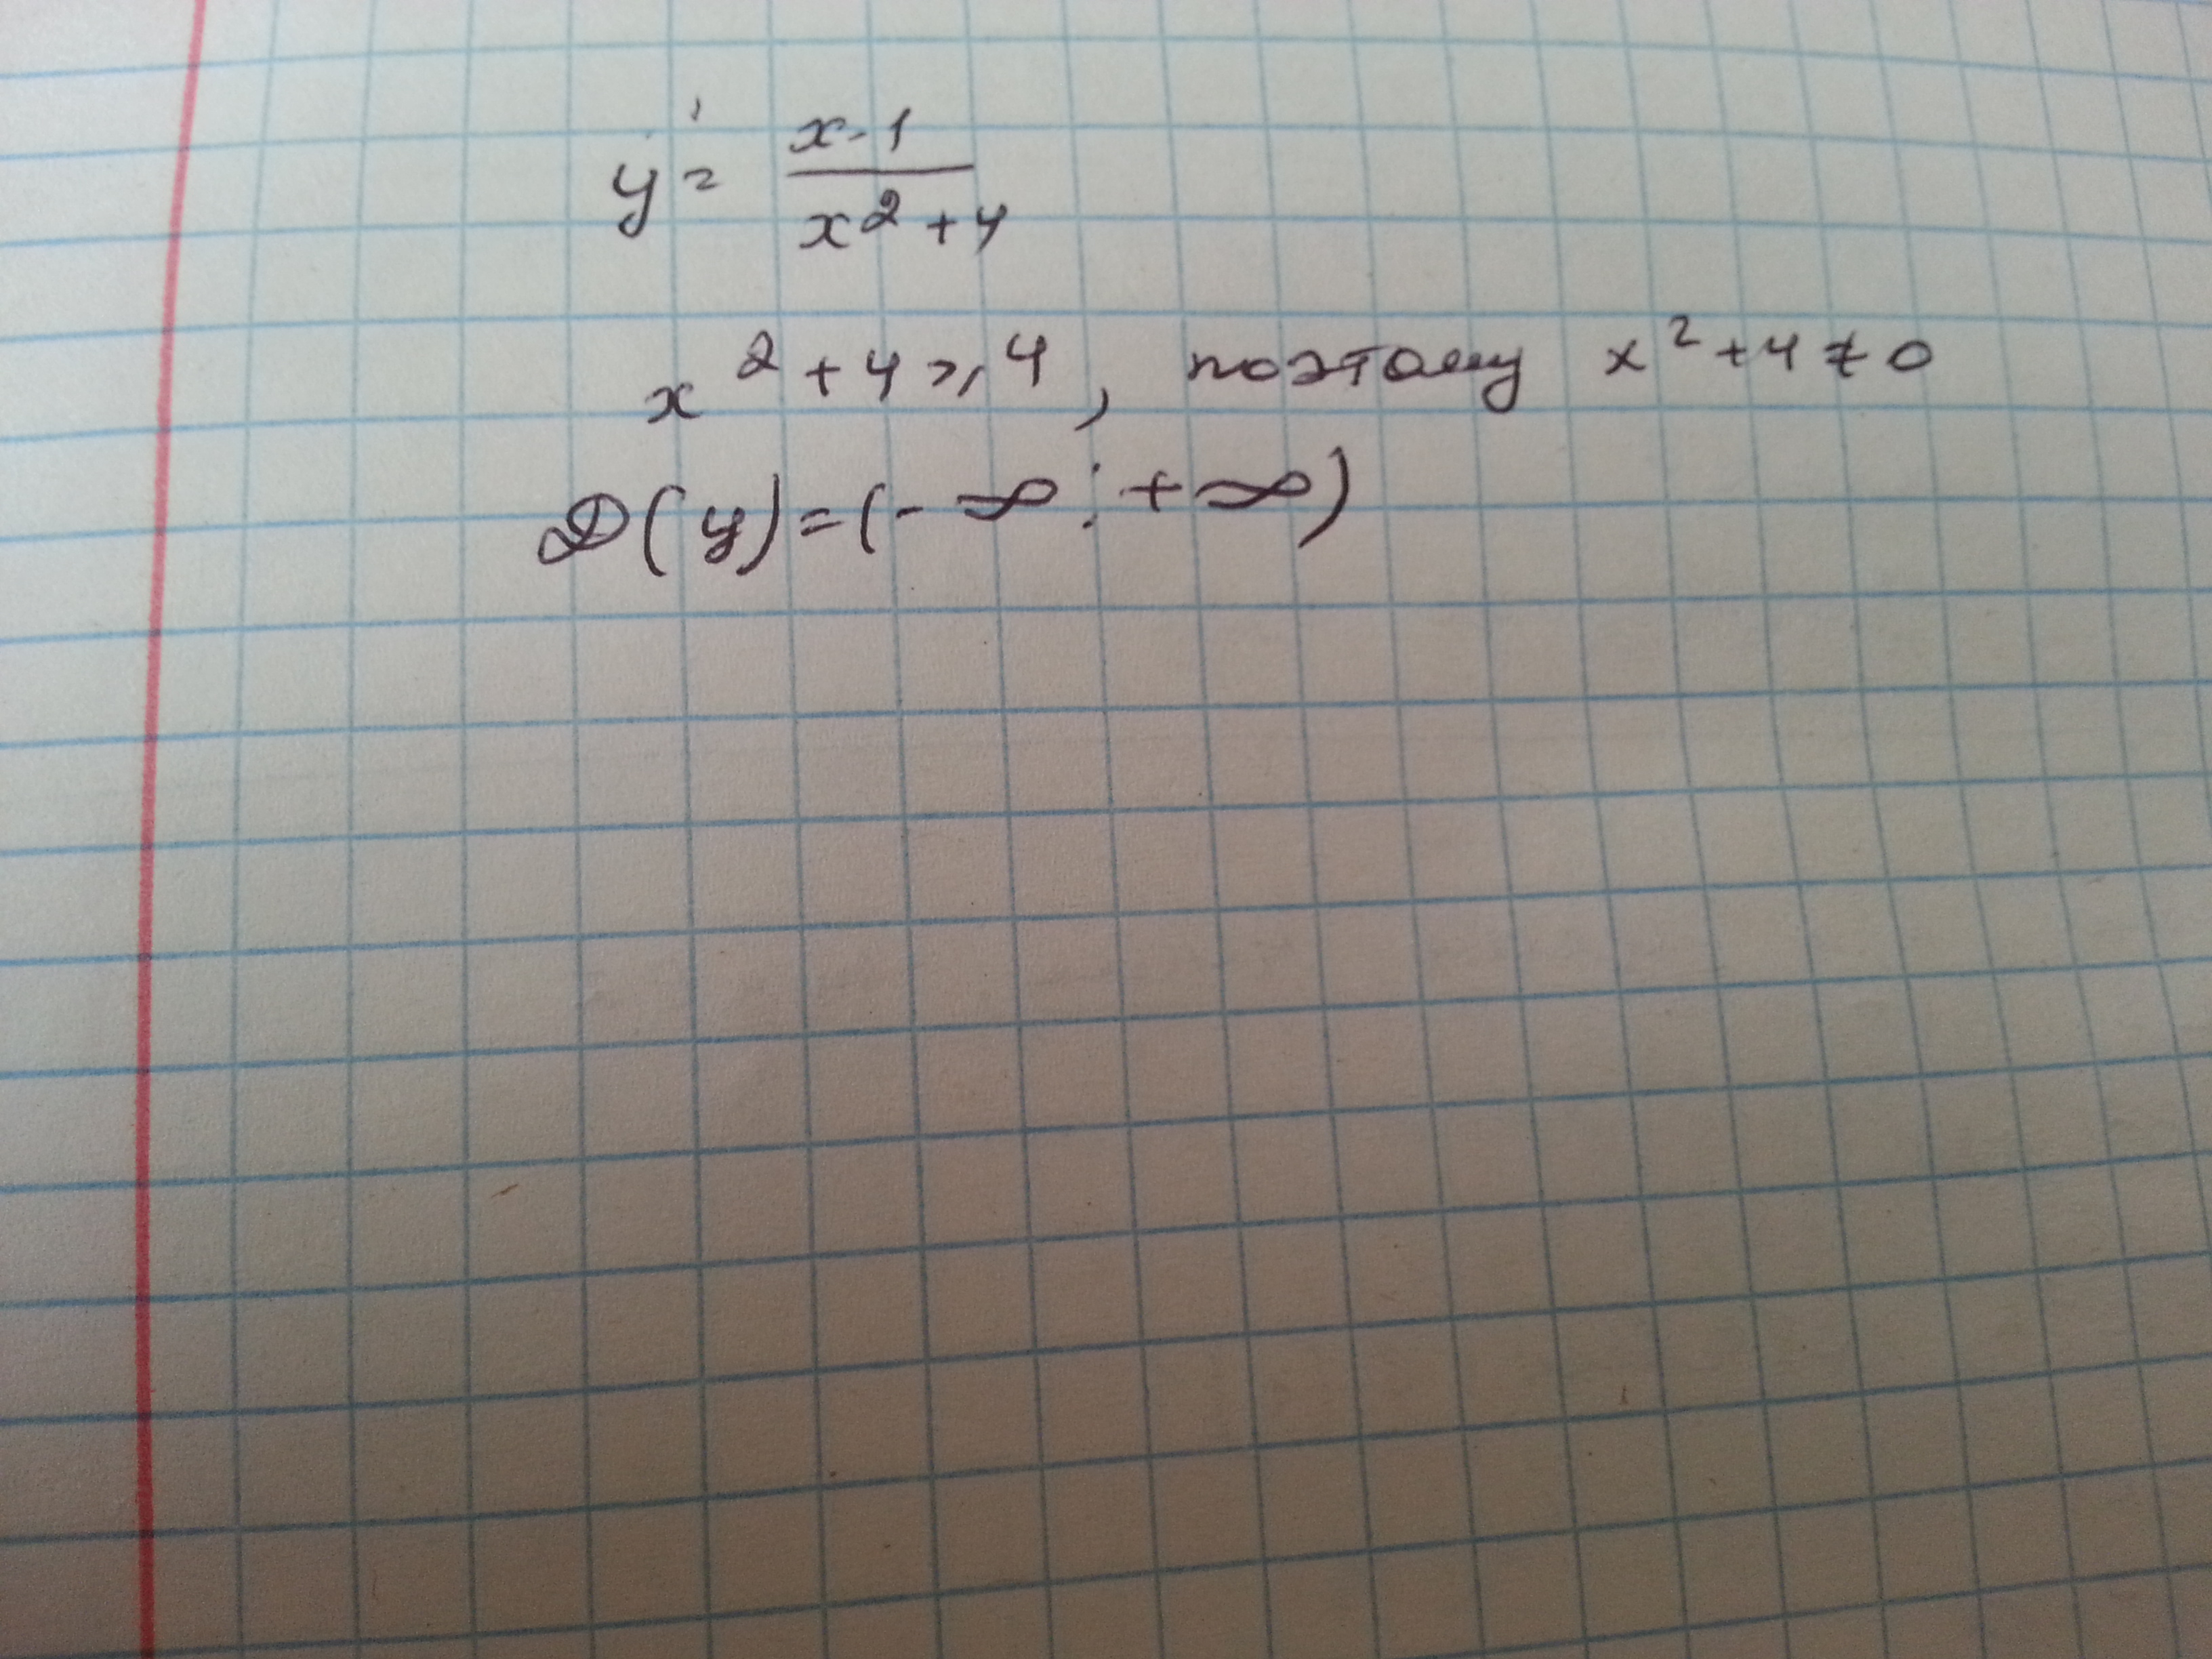 y = x-1 / x²+4
x²+4 ⩾ 4, поэтому x²+4≠0
D(y)=(-∞; +∞)